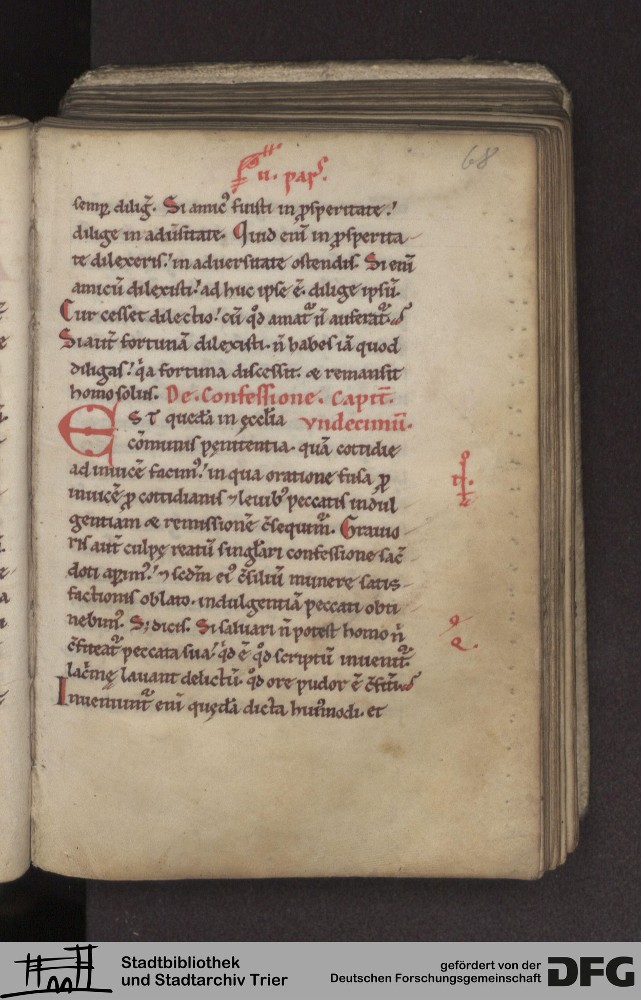 ii. pars.
68
semp dilig̅. Si amic᷒ fuisti in ꝓsperitate.
dilige in adũsitate. Quid eni̅ in ꝓsperita-
te dilexeris. in aduersitate ostendis. Si eni̅
amicũ dilexisti. ad huc ipse ē. dilige ipsũ.
Cur cesset dilectio. cũ qd̊ amat̃ ñ auferat̃.
Si aut̃ fortunã dilexisti. ñ habes iã quod
diligas. q̊a fortuna discessit. & remansit
homo solus. De. Confessione. Capit̃.
EST quedã in ecc̃lia vndecimũ.
cōmunis penitentia. quã cottidie
ad inuicē facim᷒. in qua oratione fusa ꝓ
inuicē ꝓ cottidianis ⁊ leuib᷒ peccatis indul
gentiam & remissionē c̃sequim̃. Grauio
ris aut̃ culpe reatũ singłari confessione sac̃
doti apim᷒. ⁊ scd̃m ei᷒ c̃siliũ munere satis-
factionis oblato. indulgentiã peccati obti
nebim᷒. S; dicis. Si saluari ñ potest homo ñ
c̃fiteat̃ peccata sua. qd̊ ē qd̊ scriptũ inuenit̃.
lac̃me lauant delictũ. qd̊ ore pudor ē c̃fit̃i.
Inueniunt̃ eni̅ quedã dicta hui᷒modi. et
Stadtbibliothek
und Stadtarchiv Trier
gefördert von der
Deutschen Forschungsgemeinschaft
DFG